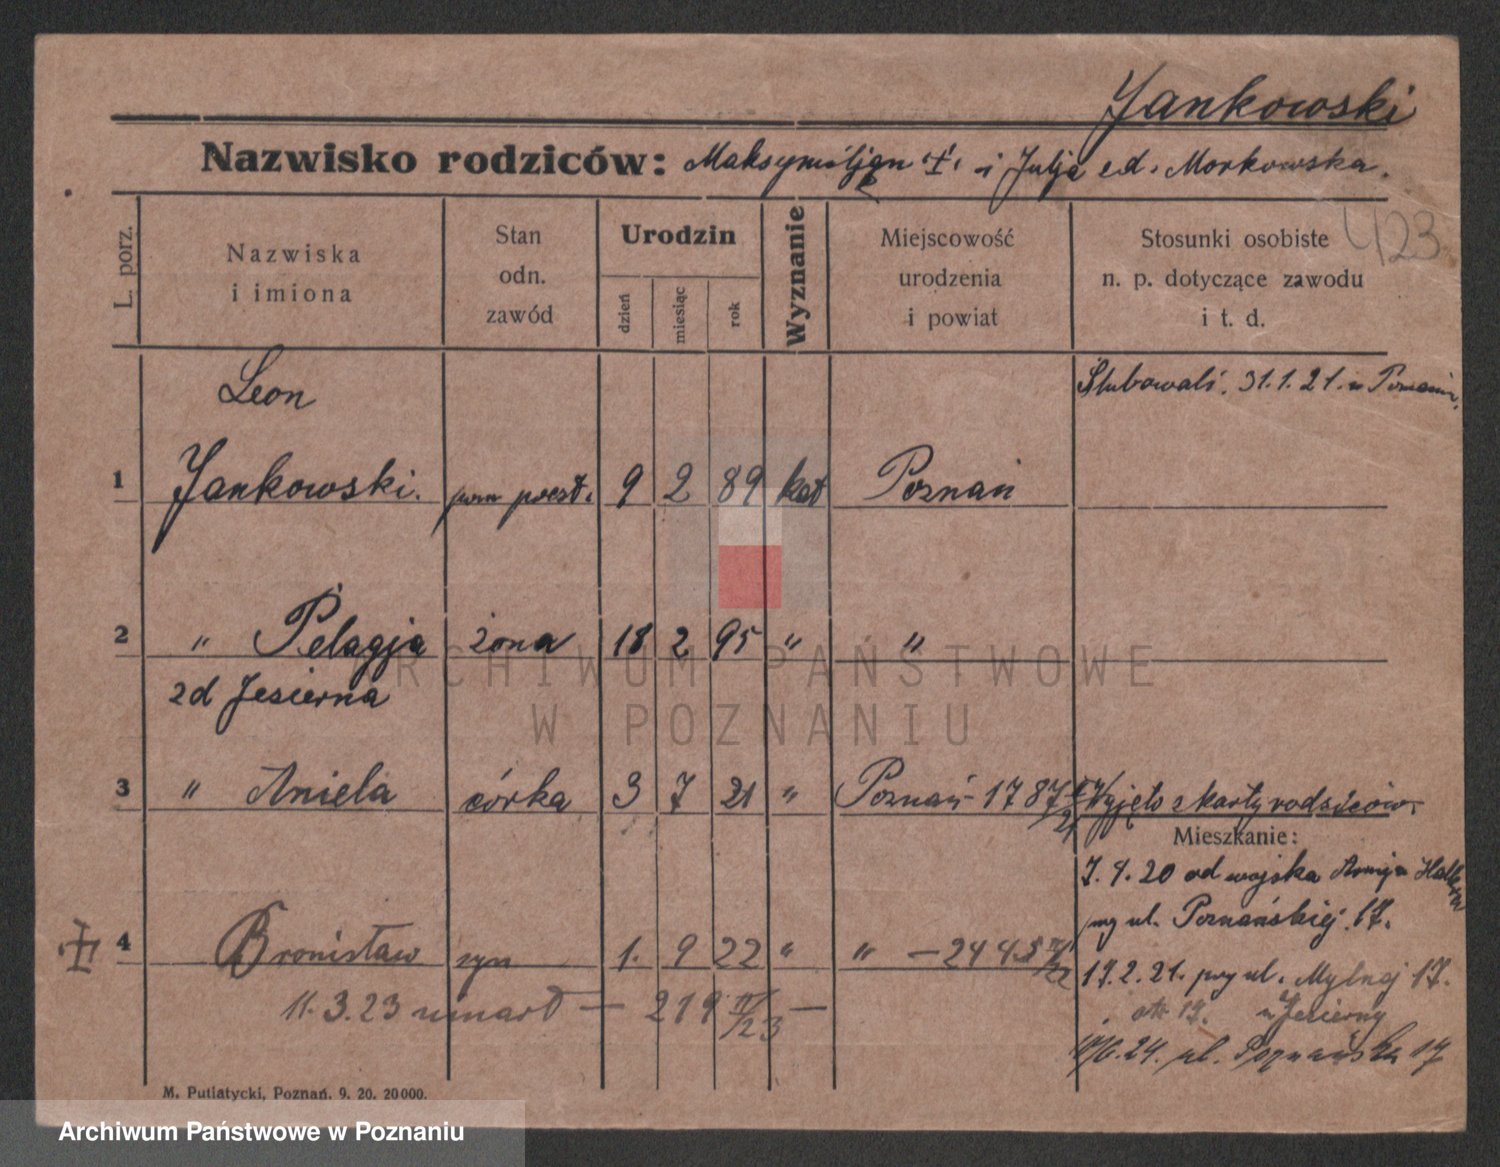 Jankowski
Nazwisko rodziców: Maksymiljan i Julja Morkowska.
423
L. porz.
Nazwiska i imiona
Stan odn. zawód
Urodzin
dzień
miesiąc
rok
Wyznanie
Miejscowość urodzenia i powiat
Stosunki osobiste n. p. dotyczące zawodu i t. d.
Leon
Ślubowali 31.1.21. w
1 Jankowski. poczt. 9 2 89 kat Poznań
2 " Pelagja żona 18 2 95 " "
zd Jesierna
3 " Aniela córka 3 7 21 " Poznań - 1787 Wyjęto z karty rodziców
Mieszkanie:
7.9.20 od wojska
ul. Poznańskiej 17.
4 Bronisław syn 1. 9 22 " " - 2445
17.2.21. ul. Mylnej 17.
11.3.23 umarł - 219 II/23 -
u Jesierny
24. ul. Poznańska 17
M. Putiatycki, Poznań. 9. 20. 20000.
ARCHIWUM PAŃSTWOWE
W POZNANIU
Archiwum Państwowe w Poznaniu